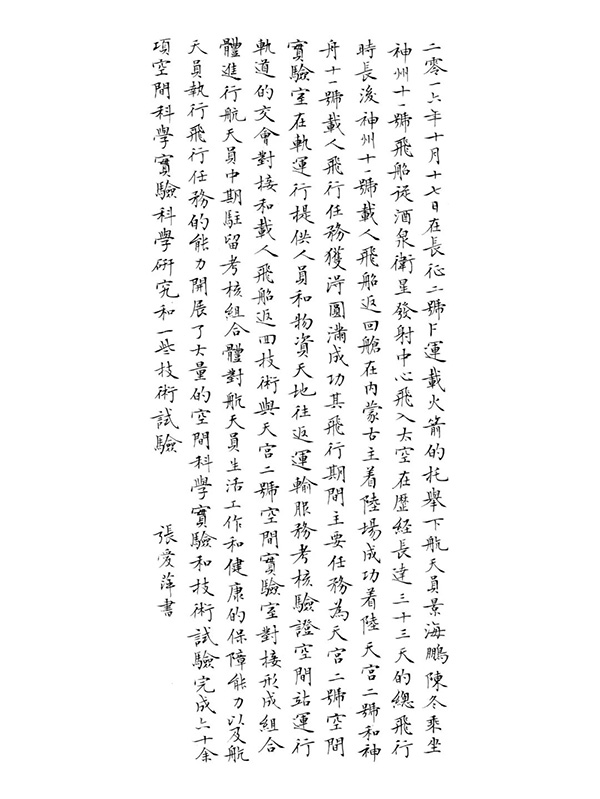 二零一六年十月十七日在長征二號F運載火箭的托舉下航天員景海鵬陳冬乘坐
神州十一號飛船從酒泉衛星發射中心飛入太空在歷經長達三十三天的總飛行
時長後神州十一號載人飛船返回艙在内蒙古主着陸場成功着陸天宮二號和神
舟十一號載人飛行任務獲得圓滿成功其飛行期間主要任務為天宮二號空間
實驗室在軌運行提供人員和物資天地往返運輸服務考核驗證空間站運行
軌道的交會對接和載人飛船返回技術與天宮二號空間實驗室對接形成組合
體進行航天員中期駐留考核組合體對航天員生活工作和健康的保障能力以及航
天員執行飛行任務的能力開展了大量的空間科學實驗和技術試驗完成六十余
項空間科學實驗科學研究和一些技術試驗
張愛萍書